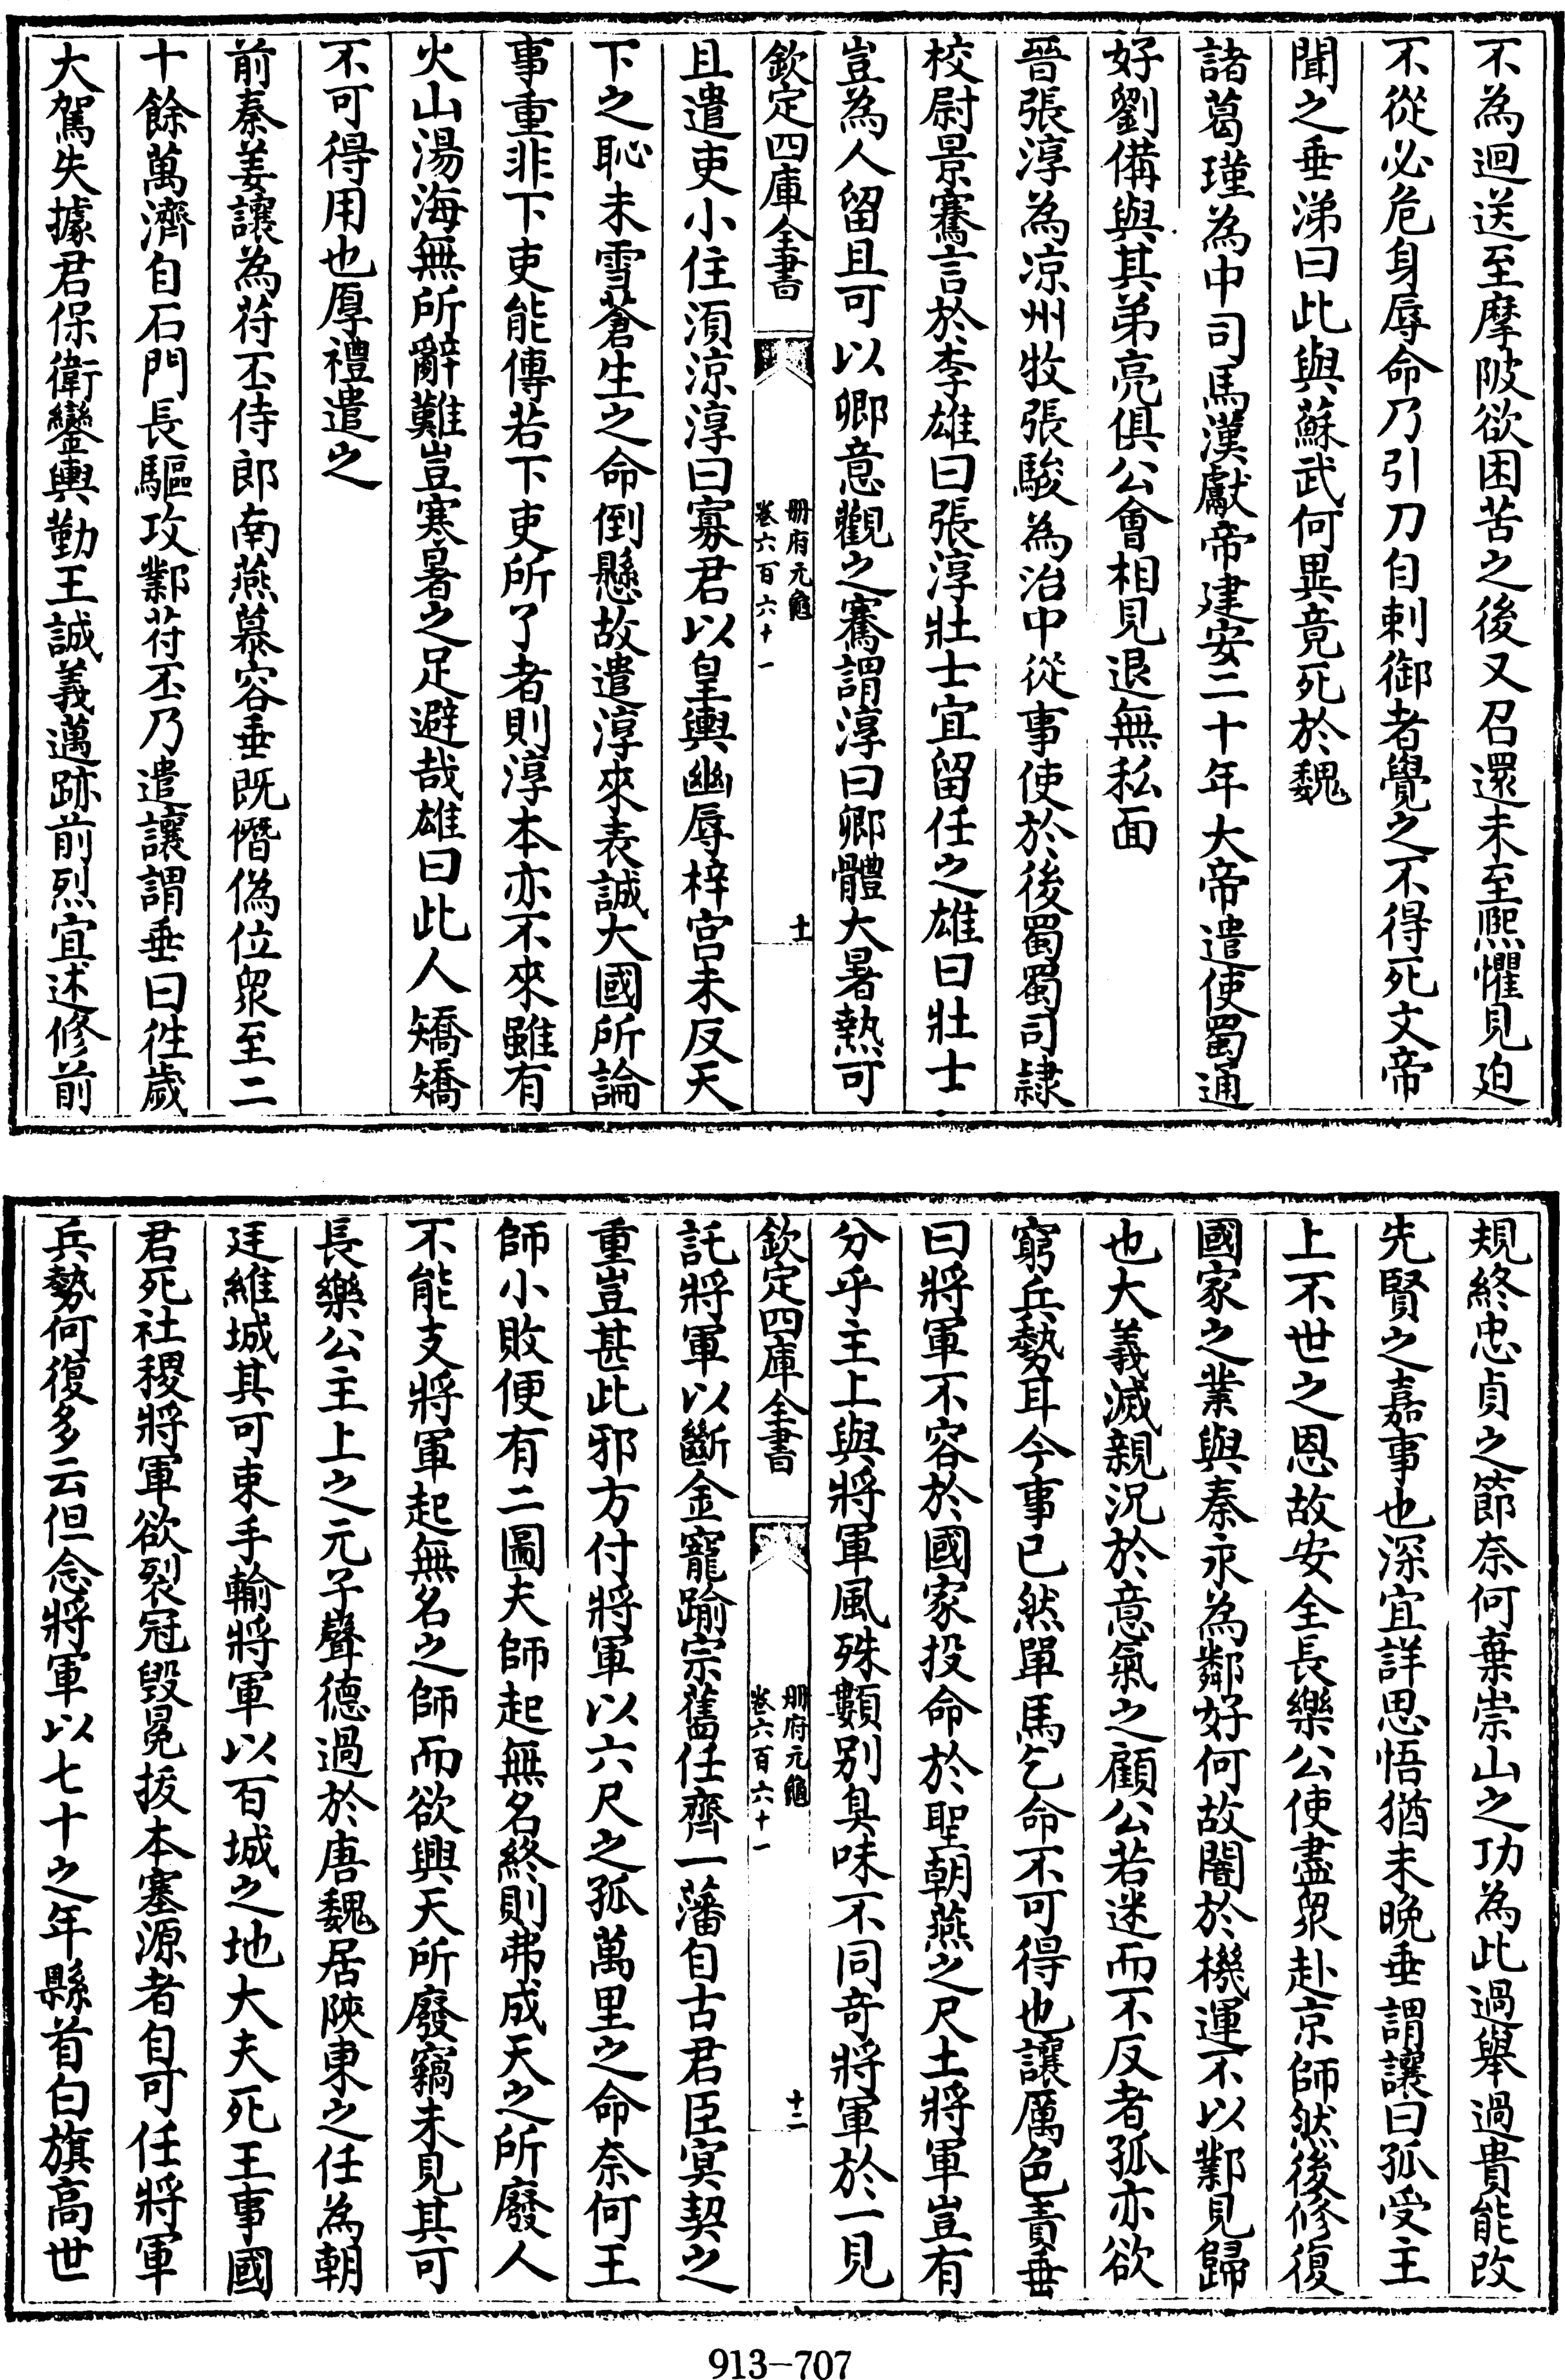 不為迴送至摩陂欲困苦之後又召還未至熈懼見迫
不從必危身辱命乃引刀自刺御者覺之不得死文帝
聞之垂涕曰此與蘇武何異竟死於魏
諸葛瑾為中司馬漢獻帝建安二十年大帝遣使蜀通
好劉備與其弟亮俱公會相見退無私面
晉張淳為凉州牧張駿為治中從事使於後蜀蜀司隸
校尉景騫言於李雄曰張淳壯士宜留任之雄曰壯士
豈為人留且可以卿意觀之騫謂淳曰卿體大暑熱可
欽定四庫全書
册府元龜
卷六百六十一
十一
且遣吏小住湏涼淳曰寡君以皇輿幽辱梓宫未反天
下之恥未雪蒼生之命倒懸故遣淳來表誠大國所論
事重非下吏能傳若下吏所了者則淳本亦不來雖有
火山湯海無所辭難豈寒暑之足避哉雄曰此人矯矯
不可得用也厚禮遣之
前秦姜讓為苻丕侍郎南燕慕容垂既僭偽位衆至二
十餘萬濟自石門長驅攻鄴苻丕乃遣讓謂垂曰徃歲
大駕失據君保衛鑾輿勤王誠義邁跡前烈宜述修前
規終忠貞之節奈何棄崇山之功為此過舉過貴能改
先賢之嘉事也深宜詳思悟猶未晩垂謂讓曰孤受主
上不世之恩故安全長樂公使盡衆赴京師然後修復
國家之業與秦永為鄰好何故闇於機運不以鄴見歸
也大義滅親況於意氣之顧公若迷而不反者孤亦欲
窮兵勢耳今事已然單馬乞命不可得也讓厲色責垂
曰將軍不容於國家投命於聖朝燕之尺土將軍豈有
分乎主上與將軍風殊類别臭味不同奇將軍於一見
欽定四庫全書
册府元龜
卷六百六十一
十二
託將軍以斷金寵踰宗舊任齊一藩自古君臣冥契之
重豈甚此邪方付將軍以六尺之孤萬里之命奈何王
師小敗便有二圖夫師起無名終則弗成天之所廢人
不能支將軍起無名之師而欲興天所廢竊未見其可
長樂公主上之元子聲德過於唐魏居陜東之任為朝
廷維城其可束手輸將軍以百城之地大夫死王事國
君死社稷將軍欲裂冠毀冕拔本塞源者自可任將軍
兵勢何復多云但念將軍以七十之年縣首白旗高世
913-707